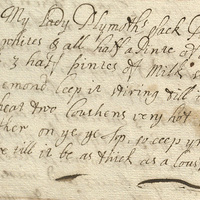 My Lady Plymoths Sack P
whites & all half a pinte of
& 3 half pintes of Milk s
lemond keep it stiring till i
heat two Coushens very hot
ther on ye ye top to keep ye
re till it be as thick as a Cous